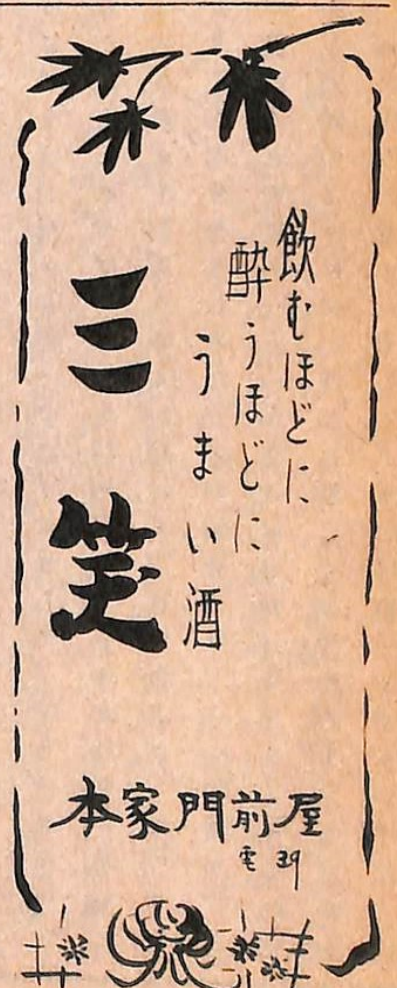 飲むほどに
酔うほどに
うまい酒
三笑
本家門前屋
電 39